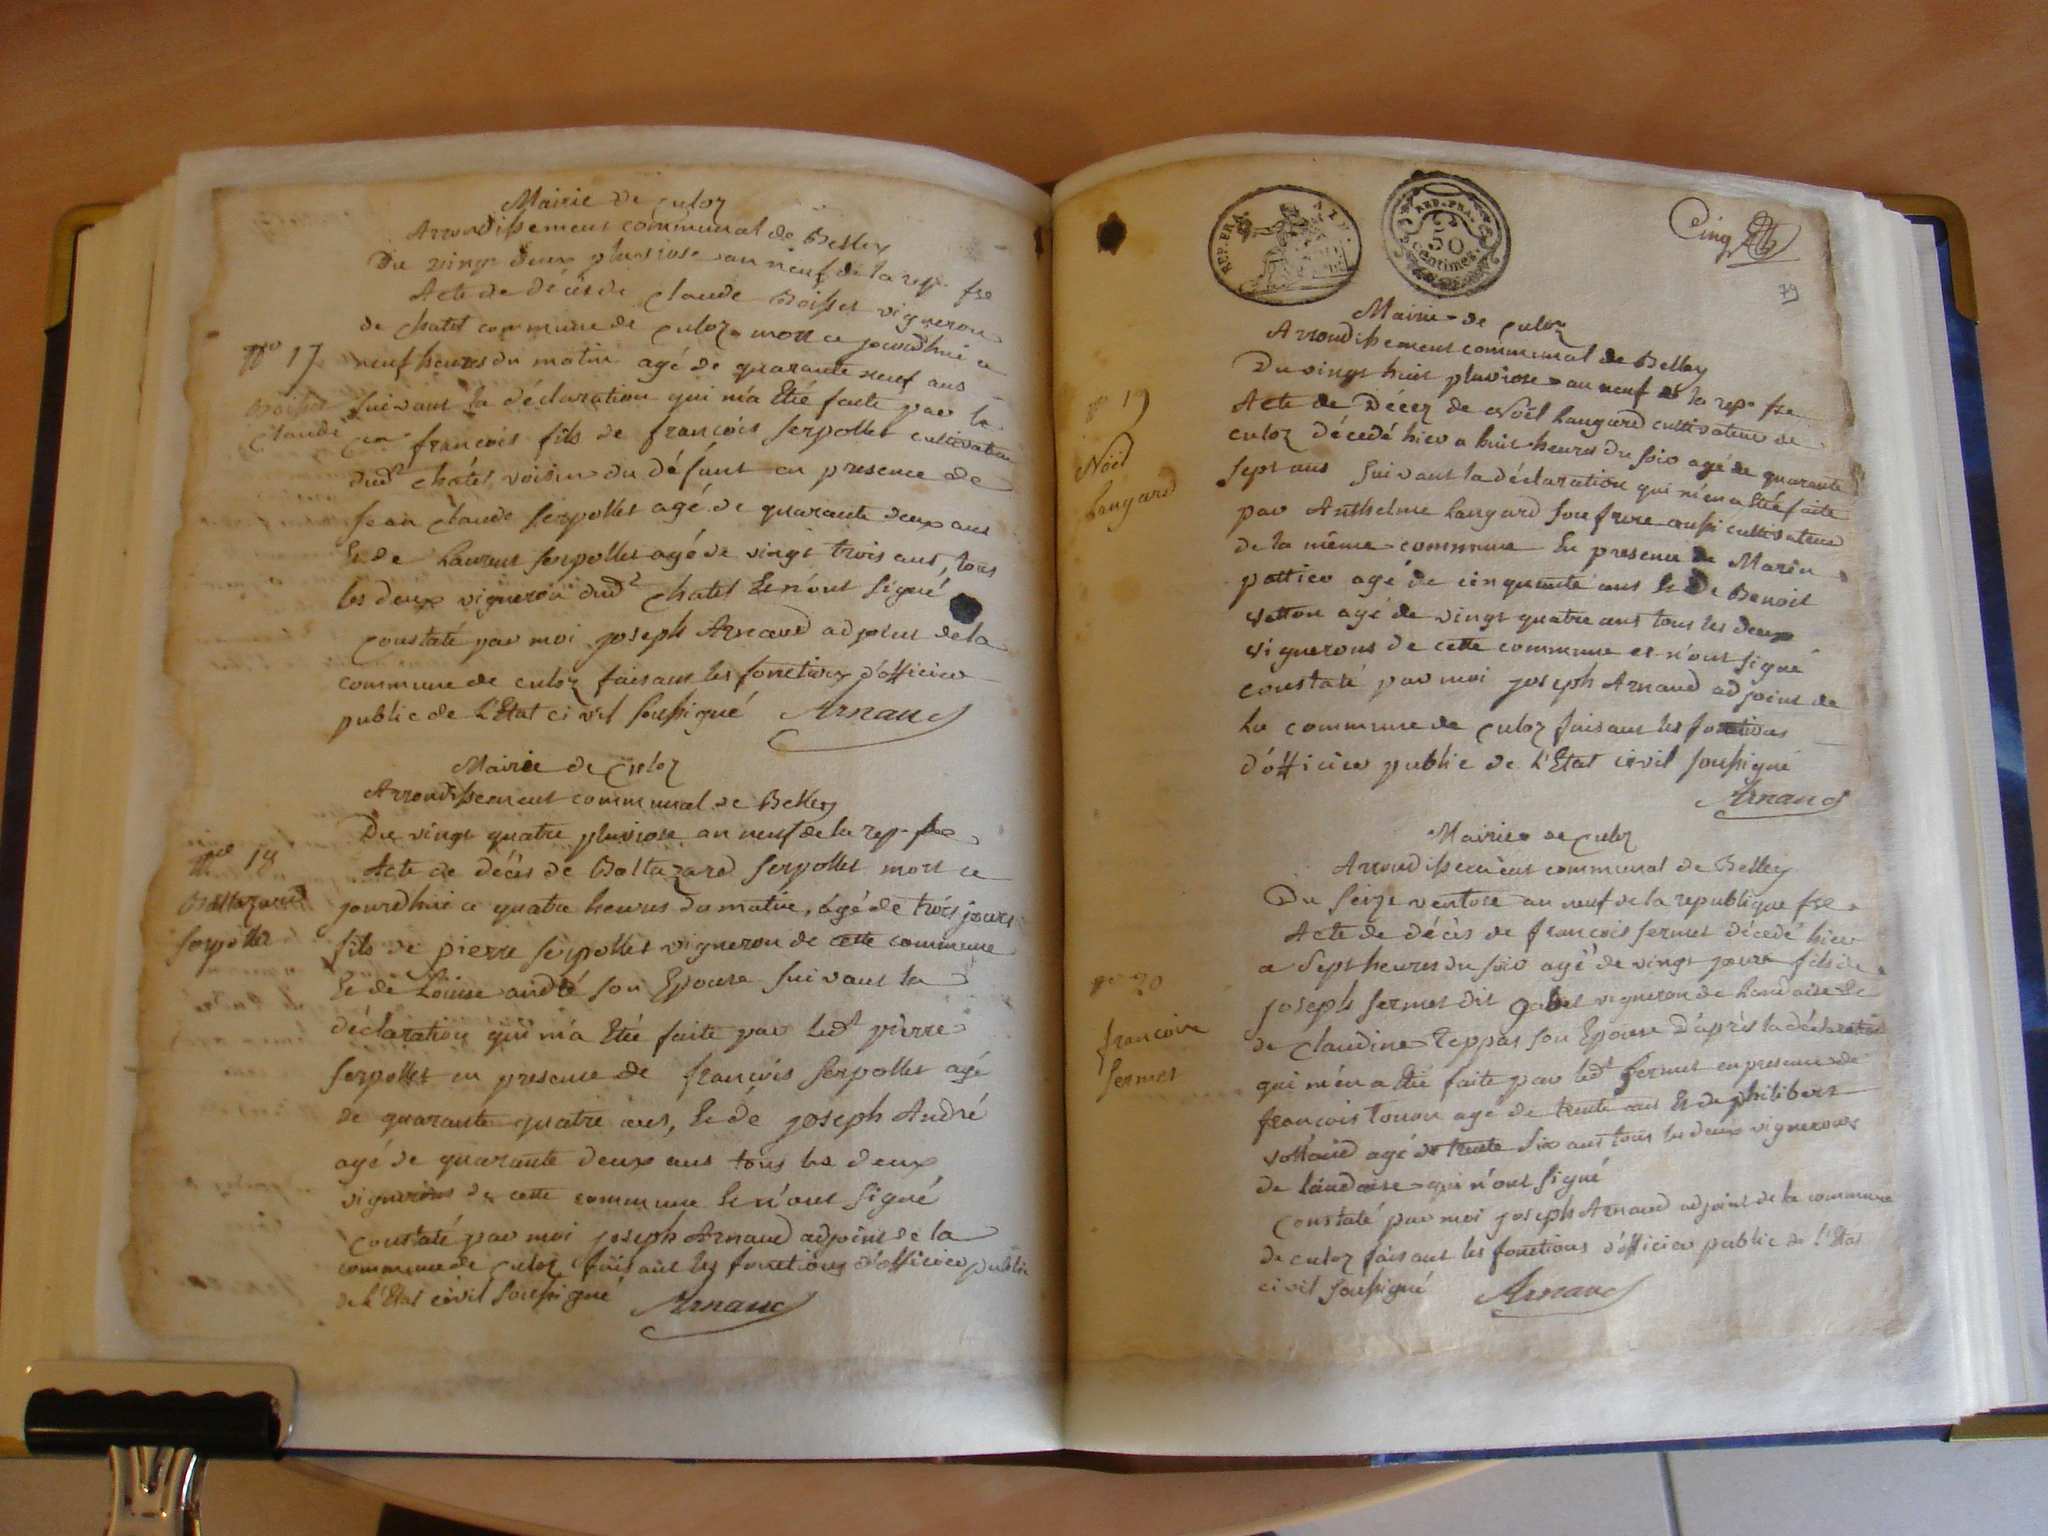 Mairie de Culoz
Arrondissement communal de Belley
Du vingt deux pluviose an neuf de la rep. fse
Acte de décès de Claude Boisset vigneron
de Chatel commune de Culoz mort ce jourdhui a
neuf heures du matin agé de quarante neuf ans
suivant la déclaration qui m'a Été faite par le
françois fils de françois Serpollet cultivateur
dud.t chatel, voisin du défunt en presence de
Jean Claude Serpollet agé de quarante deux ans
Et de Laurent Serpollet agé de vingt trois ans, tous
les deux vigneron dud.t Chatel Et n'ont signé
Constaté par moi joseph Arnaud adjoint de la
commune de culoz faisant les fonctions d'officier
public de L'Etat civil soussigné Arnaud
No 17
Boisset
Claude
Mairie de Culoz
Arrondissement communal de Belley
Du vingt quatre pluviose an neuf de la rep. fse
Acte de décès de Baltazard Serpollet mort ce
jourdhui a quatre heures du matin, agé de trois jours
fils de pierre Serpollet vigneron de cette commune
Et de Louise andré son Epouse suivant la
déclaration qui m'a Été faite par led.t pierre
Serpollet en presence de françois Serpollet agé
de quarante quatre ans, Et de joseph André
agé de quarante deux ans tous les deux
vignerons de cette commune Et n'ont signé
Constaté par moi joseph Arnaud adjoint de la
commune de Culoz faisant les fonctions d'officier public
de L'Etat civil soussigné Arnaud
No 18
Baltazard
Serpollet
REP. FRA. NAT.
REP. FRA.
50
centimes
Cinq
79
Mairie de Culoz
Arrondissement communal de Belley
Du vingt huit pluviose an neuf de la rep. fse
Acte de Décez de Noël Langard cultivateur de
culoz décédé hier a huit heures du soir agé de quarante
sept ans suivant la déclaration qui m'en a Été faite
par Anthelme Langard son frere aussi cultivateur
de la même commune En presence de Marin
pottier agé de cinquante ans Et de Benoit
Vetton agé de vingt quatre ans tous les deux
vignerons de cette commune et n'ont signé
constaté par moi joseph Arnaud adjoint de
La commune de Culoz faisant les fonctions
d'officier public de L'Etat civil soussigné
Arnaud
no 19
Noël
Langard
Mairie de Culoz
Arrondissement communal de Belley
Du seize ventose an neuf de la republique fse
Acte de décès de françois fermet décédé hier
a sept heures du soir agé de vingt jours fils de
joseph fermet dit vigneron de Landaise Et
de Claudine Teppas son Epouse d'après la déclaration
qui m'en a Été faite par led.t fermet en presence de
françois Tonon agé de trente ans Et de philibert
agé de trente six ans tous les deux vignerons
de landaise qui n'ont signé
Constaté par moi joseph Arnaud adjoint de la commune
de culoz faisant les fonctions d'officier public de l'Etat
civil soussigné Arnaud
no 20
francois
fermet